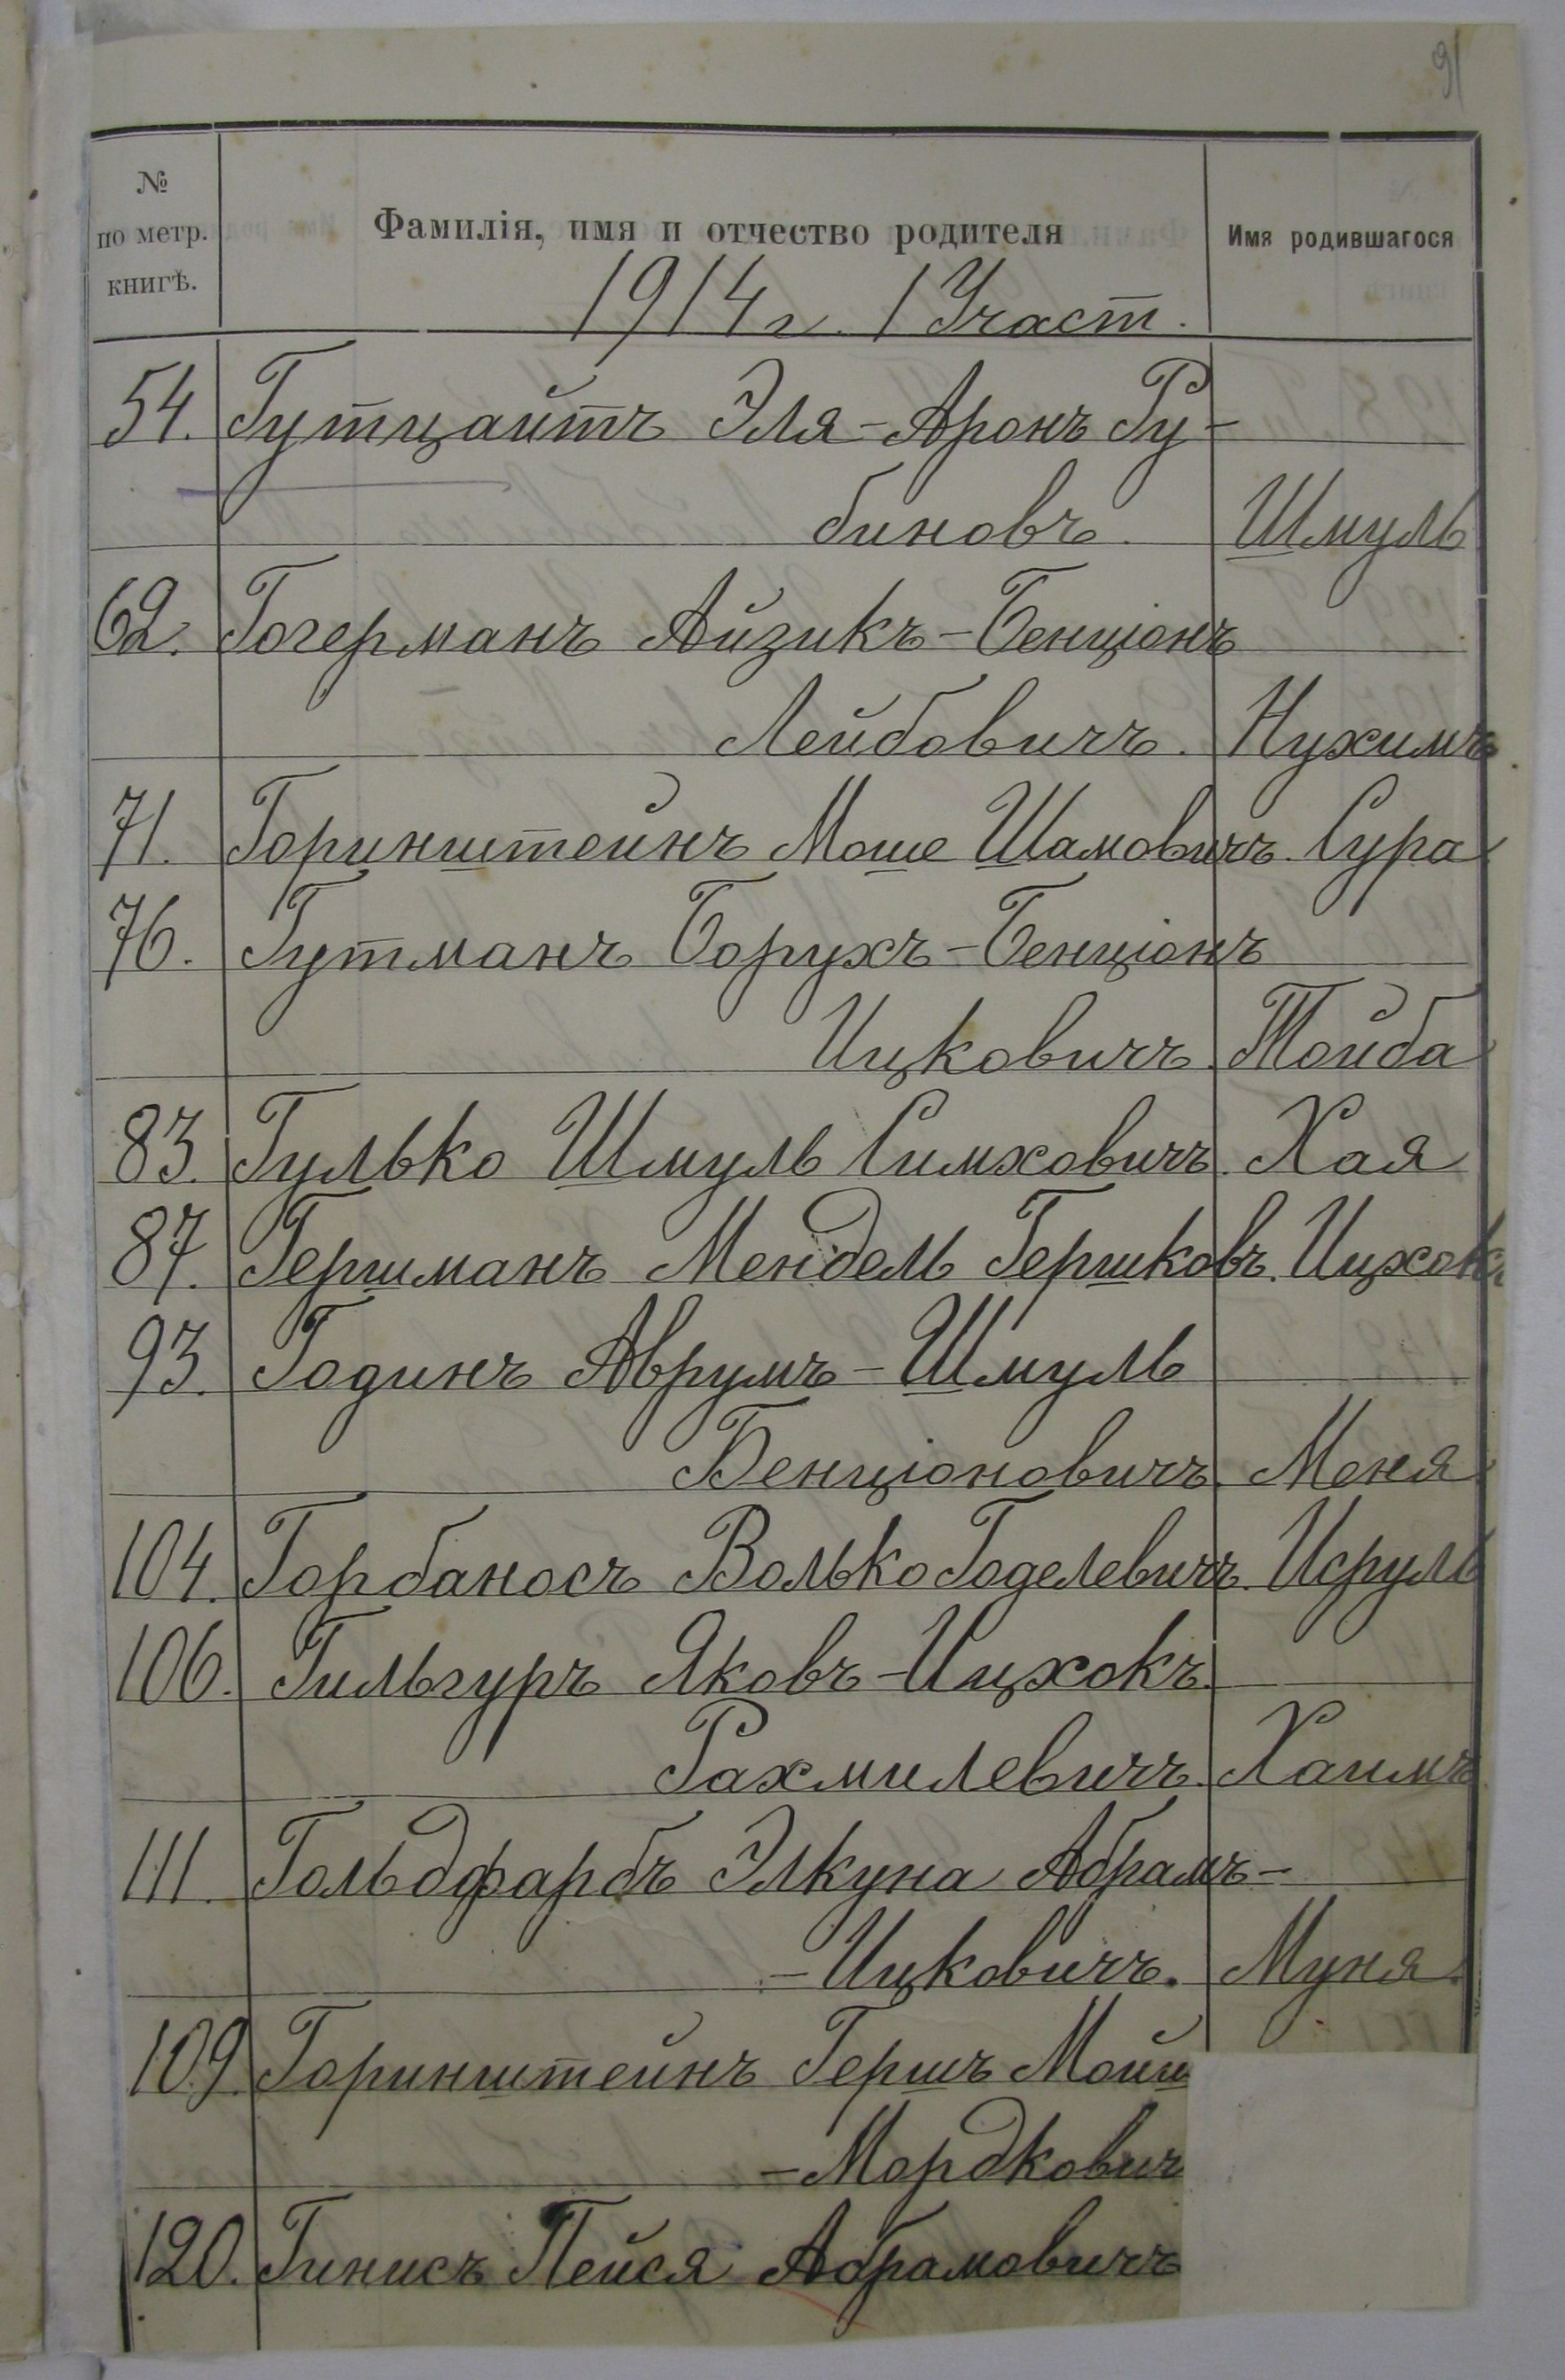 91
№ по метр. книгѣ. Фамилія, имя и отчество родителя Имя родившагося
1914 г. 1 Участ.
54. Гутцайтъ Эля-Аронъ Ру-
биновъ. Шмуль
62. Гогерманъ Айзикъ-Бенціонъ
Лейбовичъ. Нухимъ
71. Горинштейнъ Моше Шамовичъ. Сура
76. Гутманъ Борухъ-Бенціонъ
Ицковичъ. Тойба
83. Гулько Шмуль Симховичъ. Хая
87. Гершманъ Мендель Гершковъ. Ицхокъ
93. Годинъ Аврумъ-Шмуль
Бенціоновичъ. Меня
104. Горбаносъ Волько Годелевичъ. Исруль
106. Гильгуръ Яковъ-Ицхокъ.
Рахмилевичъ. Хаимъ
111. Гольдфарбъ Элкуна Абрамъ-
-Ицковичъ. Муня.
109. Горинштейнъ Гершъ Мойш
-Мордкович
120. Гинисъ Пейся Абрамовичъ